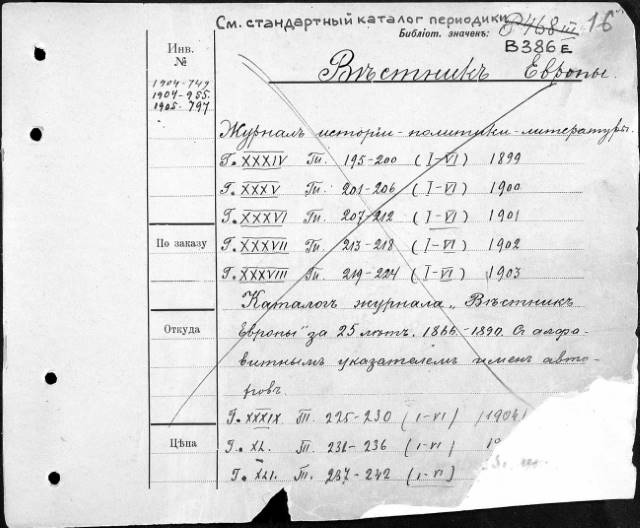 См. стандартный каталог периодики
В468 III 16
Библіот. значенъ:
В386Е
Инв.
№
1904-749
1904-955.
1905-797
Вѣстникъ Европы.
Журналъ исторіи-политики-литературы.
Г. XXXIV Тт. 195-200 (I-VI) 1899
Г. XXXV Тт. 201-206 (I-VI) 1900
Г. XXXVI Тт. 207-212 (I-VI) 1901
По заказу
Г. XXXVII Тт. 213-218 (I-VI) 1902
Г. XXXVIII Тт. 219-224 (I-VI) 1903
Каталогъ журнала „Вѣстникъ
Откуда
Европы" за 25 лѣтъ. 1866-1890. Съ алфа-
витнымъ указателемъ именъ авто-
ровъ.
Г. XXXIX Тт. 225-230 (I-VI) (1904)
Цѣна
Г. XL. Тт. 231-236 (I-VI)
Г. XLI. Тт. 237-242 (I-VI)